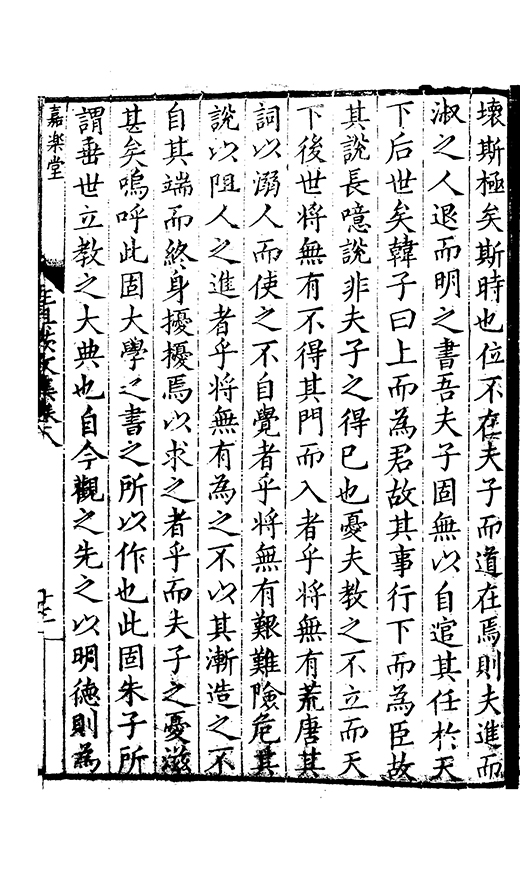 壞斯極矣斯時也位不在夫子而道在焉則夫進而
淑之人退而明之書吾夫子固無以自逭其任於天
下后世矣韓子曰上而為君故其事行下而為臣故
其說長噫說非夫子之得已也憂夫教之不立而天
下後世将無有不得其門而入者乎将無有荒唐其
詞以溺人而使之不自覺者乎将無有艱難險危其
說以阻人之進者乎将無有為之不以其漸造之不
自其端而終身擾擾焉以求之者乎而夫子之憂滋
甚矣嗚呼此固大學之書之所以作也此固朱子所
謂垂世立教之大典也自今觀之先之以明德則為
嘉楽堂
文集卷